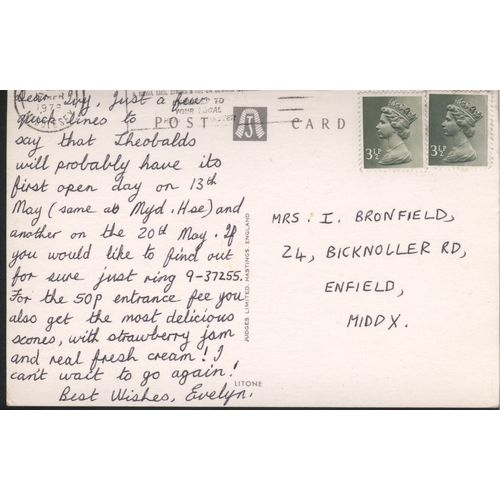 Dear Ivy, just a few
quick lines to
say that Theobalds
will probably have its
first open day on 13th
May (same as Myd. Hse) and
another on the 20th May. If
you would like to find out
for sure just ring 9-37255.
For the 50p entrance fee you
also get the most delicious
scones, with strawberry jam
and real fresh cream! I
can't wait to go again!
Best Wishes, Evelyn.
POST CARD
J
LITONE
JUDGES LIMITED, HASTINGS, ENGLAND
3½P
3½P
MRS. I. BRONFIELD,
24, BICKNOLLER RD,
ENFIELD,
MIDDX.
1979
YOUR LOCAL